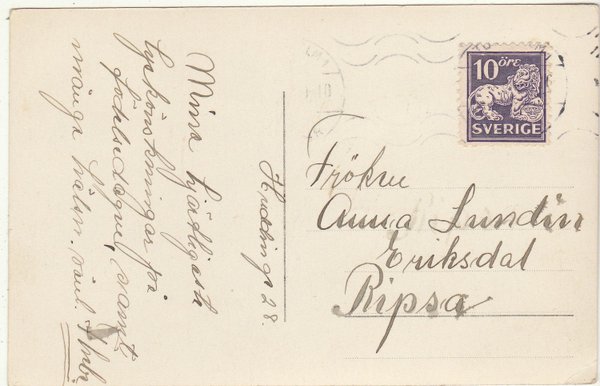 Huddinge 28.
Mina hjärtligaste
lyckönskningar på
födelsedagen, samt
många hälsn.
10 ÖRE
SVERIGE
Fröken
Anna Lundin
Eriksdal
Ripsa